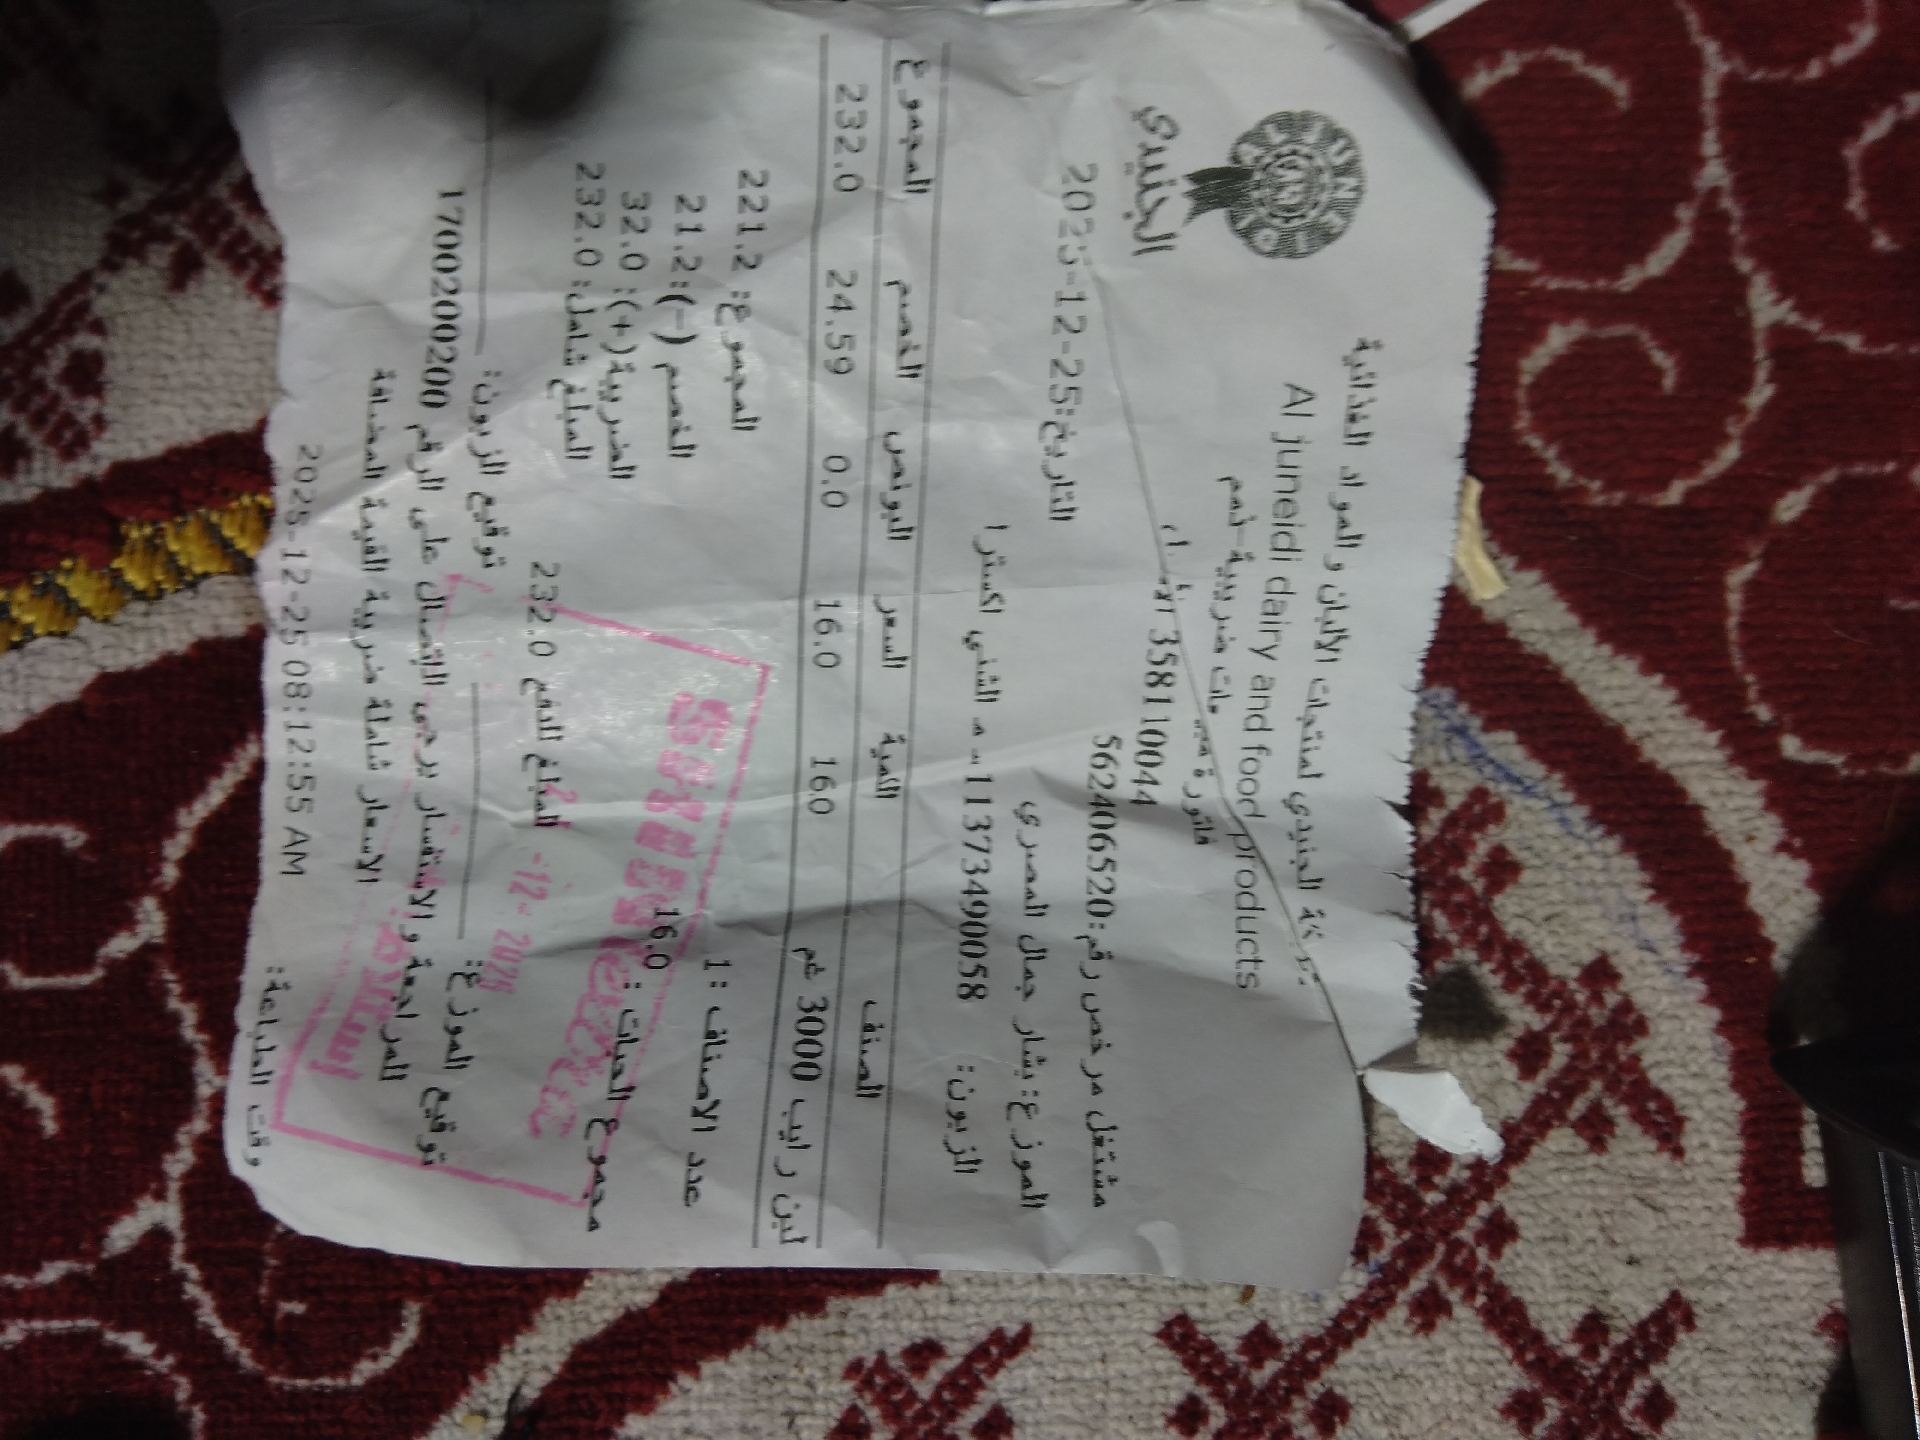 الجنيدي
شركة الجنيدي لمنتجات الالبان والمواد الغذائية
Al juneidi dairy and food products
فاتورة مبيعات ضريبية-ذمم
358110044
مشتغل مرخص رقم:562406520
التاريخ:2025-12-25
الموزع: بشار جمال المصري
الزبون: 11373490058 الشني اكسترا
الصنف الكمية السعر البونص الخصم المجموع
لبن رايب 3000 غم 16.0 16.0 0.0 24.59 232.0
عدد الاصناف :1 المجموع: 221.2
مجموع الحبات : 16.0 الخصم (-):21.2
الضريبة(+): 32.0
المبلغ شامل: 232.0
المبلغ الدفع 232.0
توقيع الموزع: توقيع الزبون:
المراجعة والاستفسار يرجى الاتصال على الرقم 1700200200
الاسعار شاملة ضريبة القيمة المضافة
وقت الطباعة: 2025-12-25 08:12:55 AM